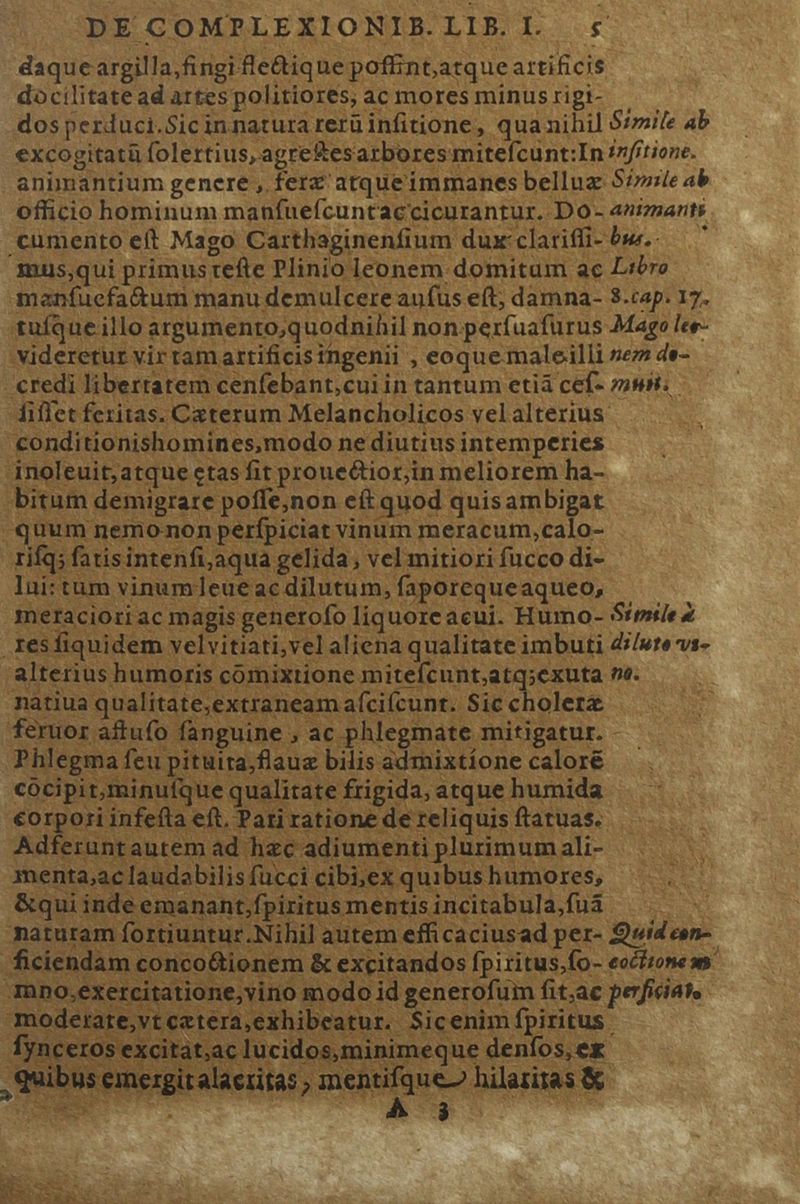 DE COMPLEXIONIB. LIB. I. 5
daque argilla,fingi flectique poſſint,atque artificis
docilitate ad artes politiores, ac mores minus rigi-
dos perduci.Sic in natura rerū inſitione, qua nihil Simile ab
excogitatū ſolertius, agreſtes arbores miteſcunt:In inſitione.
animantium genere, feræ atque immanes belluæ Simile ab
officio hominum manſueſcunt ac cicurantur. Do- animanti
cumento eſt Mago Carthaginenſium dux clariſſi- bus.
mus,qui primus teſte Plinio leonem domitum ac Libro
manſuefactum manu demulcere auſus eſt, damna- 8.cap. 17.
tuſque illo argumento,quod nihil non perſuaſurus Mago leo-
videretur vir tam artificis ingenii , eoque male illi nem do-
credi libertatem cenſebant,cui in tantum etiā ceſ- muit.
ſiſſet feritas. Cæterum Melancholicos vel alterius
conditionishomines,modo ne diutius intemperies
inoleuit,atque ętas ſit prouectior,in meliorem ha-
bitum demigrare poſſe,non eſt quod quis ambigat
quum nemo non perſpiciat vinum meracum,calo-
riſq; ſatis intenſi,aqua gelida, vel mitiori ſucco di-
lui: tum vinum leue ac dilutum, ſaporeque aqueo,
meraciori ac magis generoſo liquore acui. Humo- Simile à
res ſiquidem vel vitiati,vel aliena qualitate imbuti diluto vi-
alterius humoris cōmixtione miteſcunt,atq;exuta no.
natiua qualitate,extraneam aſciſcunt. Sic choleræ
feruor affuſo ſanguine , ac phlegmate mitigatur.
Phlegma ſeu pituita,flauæ bilis admixtíone calorē
cōcipit,minuſque qualitate frigida, atque humida
corpori infeſta eſt. Pari ratione de reliquis ſtatuas.
Adferunt autem ad hæc adiumenti plurimum ali-
menta,ac laudabilis ſucci cibi,ex quibus humores,
&qui inde emanant,ſpiritus mentis incitabula,ſuā
naturam ſortiuntur.Nihil autem efficacius ad per- Quid con-
ficiendam concoctionem & excitandos ſpiritus,ſo- coctionem
mno,exercitatione,vino modo id generoſum ſit,ac perficiat.
moderate,vt cætera,exhibeatur. Sic enim ſpiritus
ſynceros excitat,ac lucidos,minimeque denſos, ex
quibus emergit alacritas, mentiſque hilaritas &
A 3